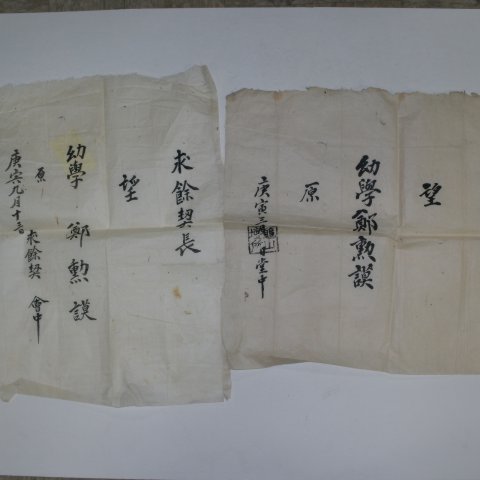 望
幼學鄭勳謨
原
庚寅三 堂中
求餘契長
望
幼學 鄭勳謨
原
庚寅九月十 求餘契 會中